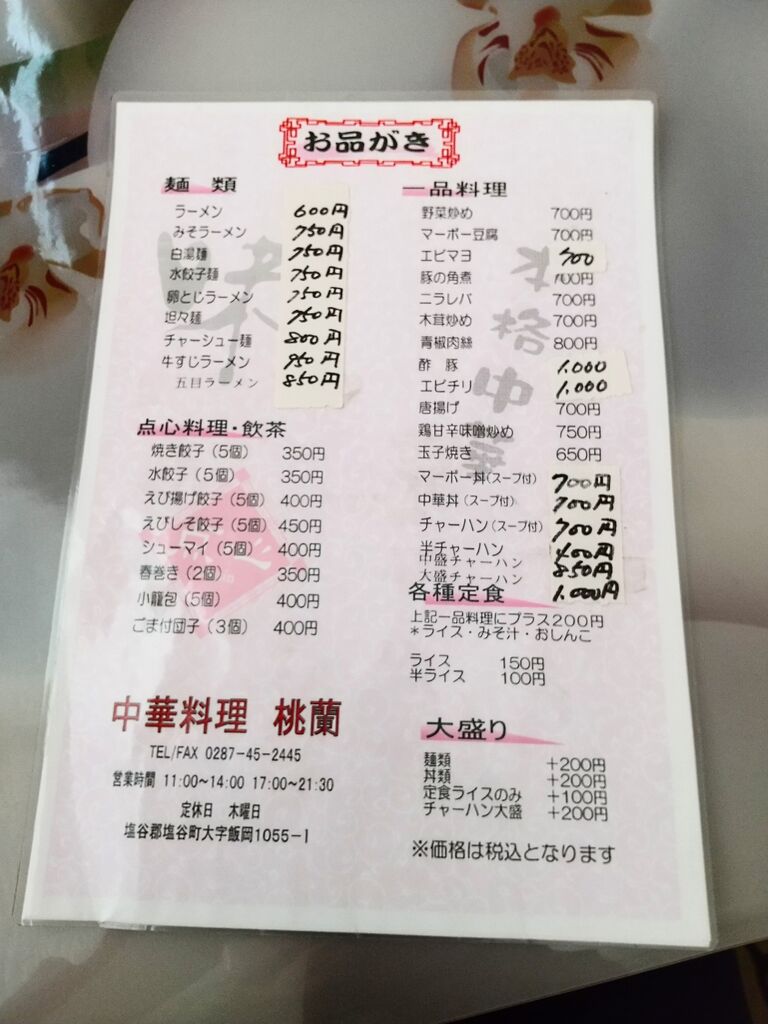 お品がき
麺類
ラーメン 600円
みそラーメン 750円
白湯麺 750円
水餃子麺 750円
卵とじラーメン 750円
坦々麺 750円
チャーシュー麺 800円
牛すじラーメン 950円
五目ラーメン 850円
点心料理・飲茶
焼き餃子（5個） 350円
水餃子（5個） 350円
えび揚げ餃子（5個） 400円
えびしそ餃子（5個） 450円
シューマイ（5個） 400円
春巻き（2個） 350円
小籠包（5個） 400円
ごま付団子（3個） 400円
中華料理 桃蘭
TEL/FAX 0287-45-2445
営業時間 11:00~14:00 17:00~21:30
定休日 木曜日
塩谷郡塩谷町大字飯岡1055-1
一品料理
野菜炒め 700円
マーボー豆腐 700円
エビマヨ 900
豚の角煮 700円
ニラレバ 700円
木茸炒め 700円
青椒肉絲 800円
酢豚 1,000
エビチリ 1,000
唐揚げ 700円
鶏甘辛味噌炒め 750円
玉子焼き 650円
マーボー丼（スープ付） 700円
中華丼（スープ付） 700円
チャーハン（スープ付） 700円
半チャーハン 400円
中盛チャーハン 850円
大盛チャーハン 1,000円
各種定食
上記一品料理にプラス200円
*ライス・みそ汁・おしんこ
ライス 150円
半ライス 100円
大盛り
麺類 +200円
丼類 +200円
定食ライスのみ +100円
チャーハン大盛 +200円
※価格は税込となります
味
本格中華